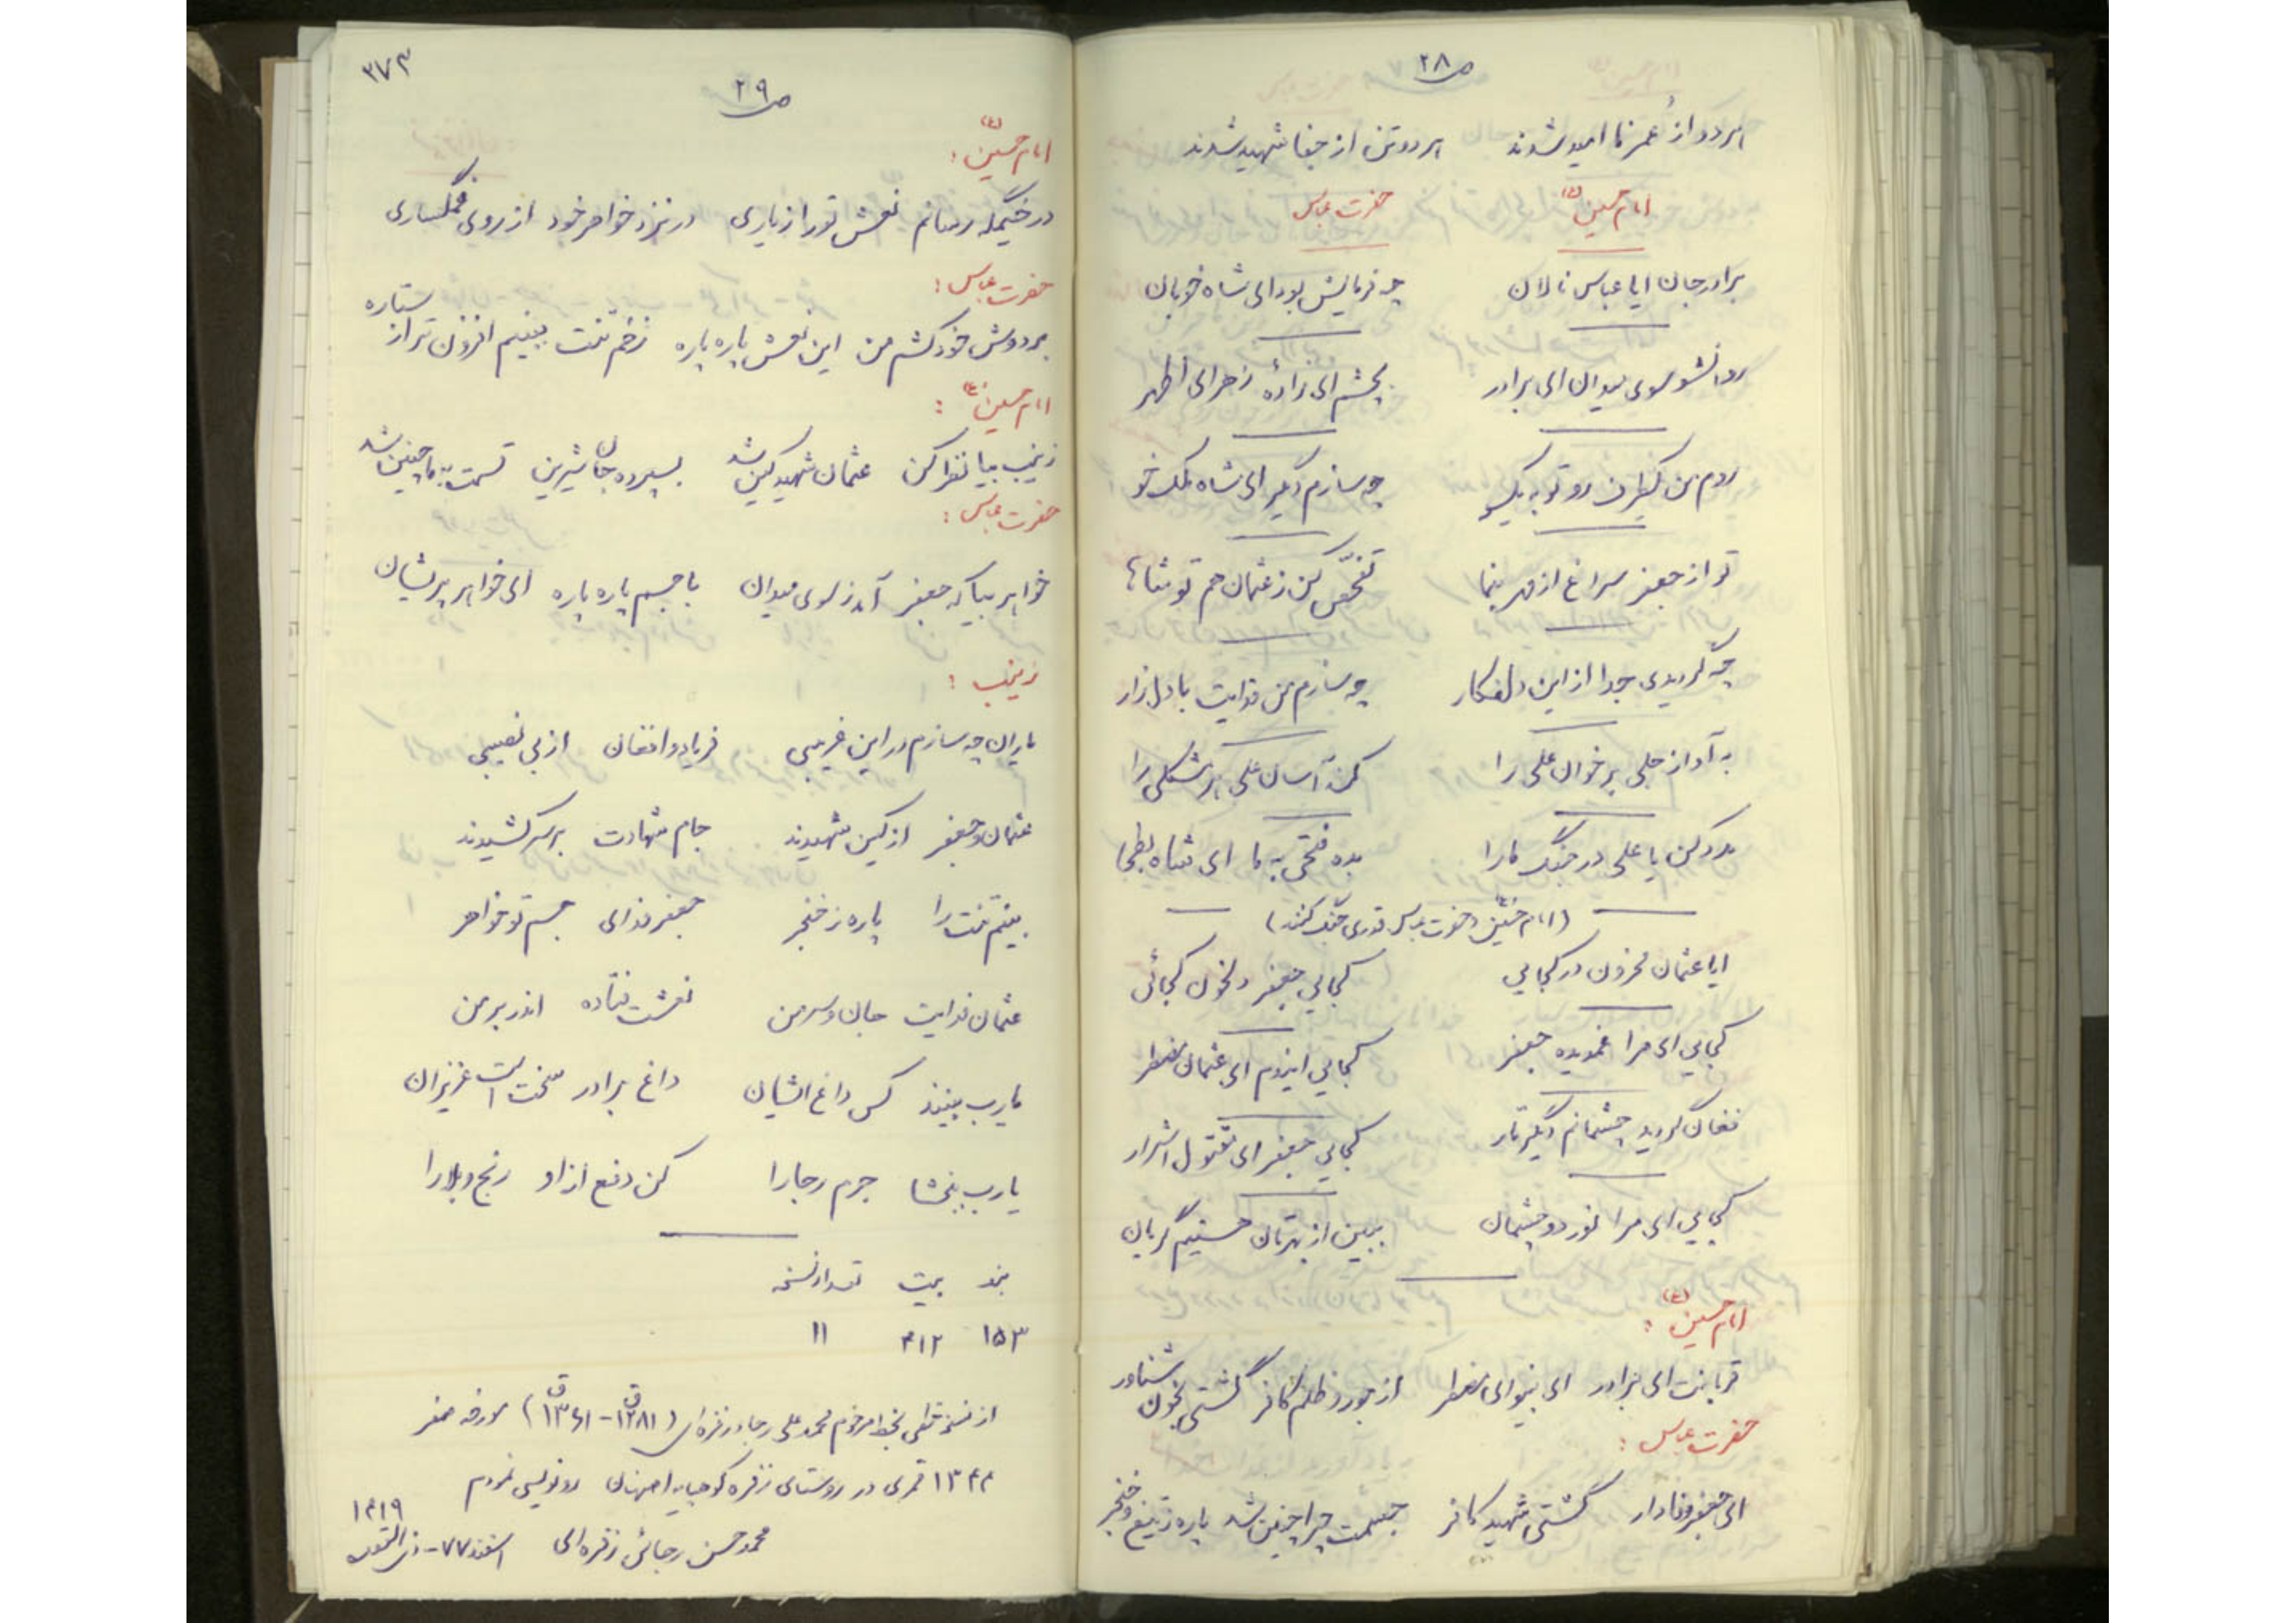 ص ۲۸
هر دو از عمر نا امید شدند هر دو تن از جفا شهید شدند
امام حسین (ع) حضرت عباس
برادر جان ایا عباس نالان چه فرمایش بود ای شاه خوبان
روانشو سوی میدان ای برادر بچشم ای زادهٔ زهرای اطهر
روم من یکطرف رو تو به یکسو چه سازم دگیر ای شاه ملک خو
تو از جعفر سراغ از مهر بنما تفحّص کن ز عثمان هم تو شاها
چه گردیدی جدا از این دلفکار چه سازم من فدایت با دل زار
به آواز جلی بر خوان علی را کند آسان علی هر مشکلی را
مدد کن یا علی در جنگ ما را بده فتحی به ما ای شاه بطحا
(امام حسین و حضرت عباس قدری جنگ کنند)
ایا عثمان محزون در کجایی کجایی جعفر دلخون کجائی
کجایی ای مرا غمدیده جعفر کجایی ایندم ای عثمان مضطر
فغان گردید چشمانم دگیر تار کجایی جعفر ای مقتول اشرار
کجایی ای مرا نور دو چشمان ببین از بهرتان هستیم گریان
امام حسین (ع) :
قربانت ای برادر ای بینوای مضطر از جور و ظلم کافر گشتی بخون شناور
حضرت عباس :
ای جعفر وفادار گشتی شهید کافر جسمت چرا چنین شد پاره ز تیغ و خنجر
۳۷۳
ص ۲۹
امام حسین (ع) :
در خیمگه رسانم نعش تو را ز یاری در نزد خواهر خود از روی غمگساری
حضرت عباس :
بر دوش خود کشم من این نعش پاره پاره زخم تنت ببینم افزون تر از ستاره
امام حسین (ع) :
زینب بیا نظر کن عثمان شهید کین شد بسپرده جان شیرین قسمت به ما چنین شد
حضرت عباس :
خواهر بیا که جعفر آمد ز سوی میدان با جسم پاره پاره ای خواهر پریشان
زینب :
یاران چه سازم در این غریبی فریاد و افغان از بی نصیبی
عثمان و جعفر از کین شهیدند جام شهادت بر سر کشیدند
بینم تنت را پاره ز خنجر جعفر فدای جسم تو خواهر
عثمان فدایت جان و سر من نعشت فتاده اندر بر من
یارب نبیند کس داغ اشیان داغ برادر سخت است عزیزان
یارب ببخشا جرم رجا را کن دفع از او رنج و بلا را
بند بیت تعداد نسخه
۱۵۳ ۴۱۲ ۱۱
از نسخه خطی بخط مرحوم محمد علی رجاء زفره ای (۱۲۸۱ ق - ۱۳۶۱ ق) مورخه صفر
۱۳۴۴ قمری در روستای زفره کوهپایه اصفهان رونویسی نمودم
محمد حسن رجائی زفره ای اسفند ۷۷ - ذی القعده ۱۴۱۹